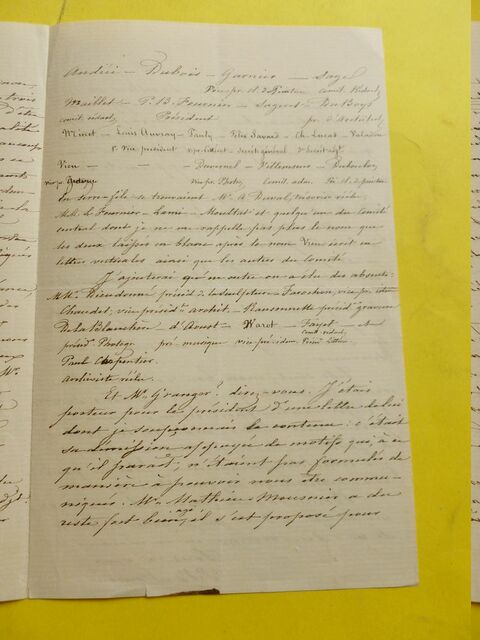 Andrieu – Dubois – Garnier – Sagel
Vice pr. st. de Peinture comit. Rédact.
Maillet – P. B. Fournier – Saguet – Du Boys
comit. rédact. Président pr. d'Architect.
Minet – Louis Auvray – Pauly – Félix Savard – Ch. Lucas – Valadon
1er Vice président secrét. général
Vien — Duvernel – Villemsens – Destouches
vice pr. Gravure vice pr. Photog. Comit. adm.
En serre-file se trouvaient Mr. A. Duval, trésorier
MM. le Fournier – Lami – Moultrat et quelqu'un du Comité
central dont je ne me rappelle pas plus le nom que
les deux laissés en blanc après le nom Vien écrit en
lettres verticales ainsi que les autres du Comité.
J'ajouterai qu'un autre on a été des absents:
MM. Dieudonné présid. de la sculpture – Farochon, vice pr. idem
Chaudet, vice présid. architt. – Ransonnette présid. gravure
De la Blanchère d'Aoust – Warot – Fayet
comit. rédact.
présid. Photogr. pré. musique vice pré. idem
Paul Carpentier
archiviste
Et Mr. Granger? direz-vous. J'étais
porteur pour le président d'une lettre de lui
dont je soupçonnais le contenu: c'était
sa démission appuyée de motifs qui, à ce
qu'il paraît, n'étaient pas formulés de
manière à pouvoir nous être commu-
niqués. Mr. Mathieu Meusnier a du
reste fort bien agi, il s'est proposé pour